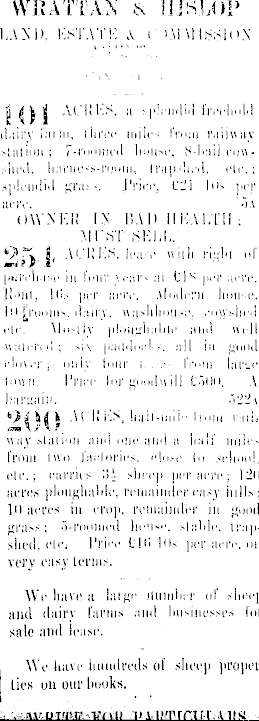 WRATTAN & HISLOP
LAND, ESTATE & COMMISSION
101 ACRES, a splendid freehold
dairy farm, three miles from railway
station; 7-roomed house, 8-bail cow-
shed, harness-room, trapshed, etc.;
splendid grass. Price, £21 10s per
acre. 5A
OWNER IN BAD HEALTH;
MUST SELL.
254 ACRES, lease with right of
purchase in four years at £18 per acre.
Rent, 16s per acre. Modern house,
10 rooms, dairy, washhouse, cowshed
etc. Mostly ploughable and well
watered; six paddocks, all in good
clover; only four from large
town. Price for goodwill £500. A
bargain. 522A
200 ACRES, half-mile from rail-
way station and one and a half miles
from two factories, close to school,
etc.; carries 3½ sheep per acre; 120
acres ploughable, remainder easy hills;
10 acres in crop, remainder in good
grass; 5-roomed house, stable, trap-
shed, etc. Price £16 10s per acre, on
very easy terms.
We have a large number of sheep
and dairy farms and businesses for
sale and lease.
We have hundreds of sheep proper
ties on our books.
WRITE FOR PARTICULARS